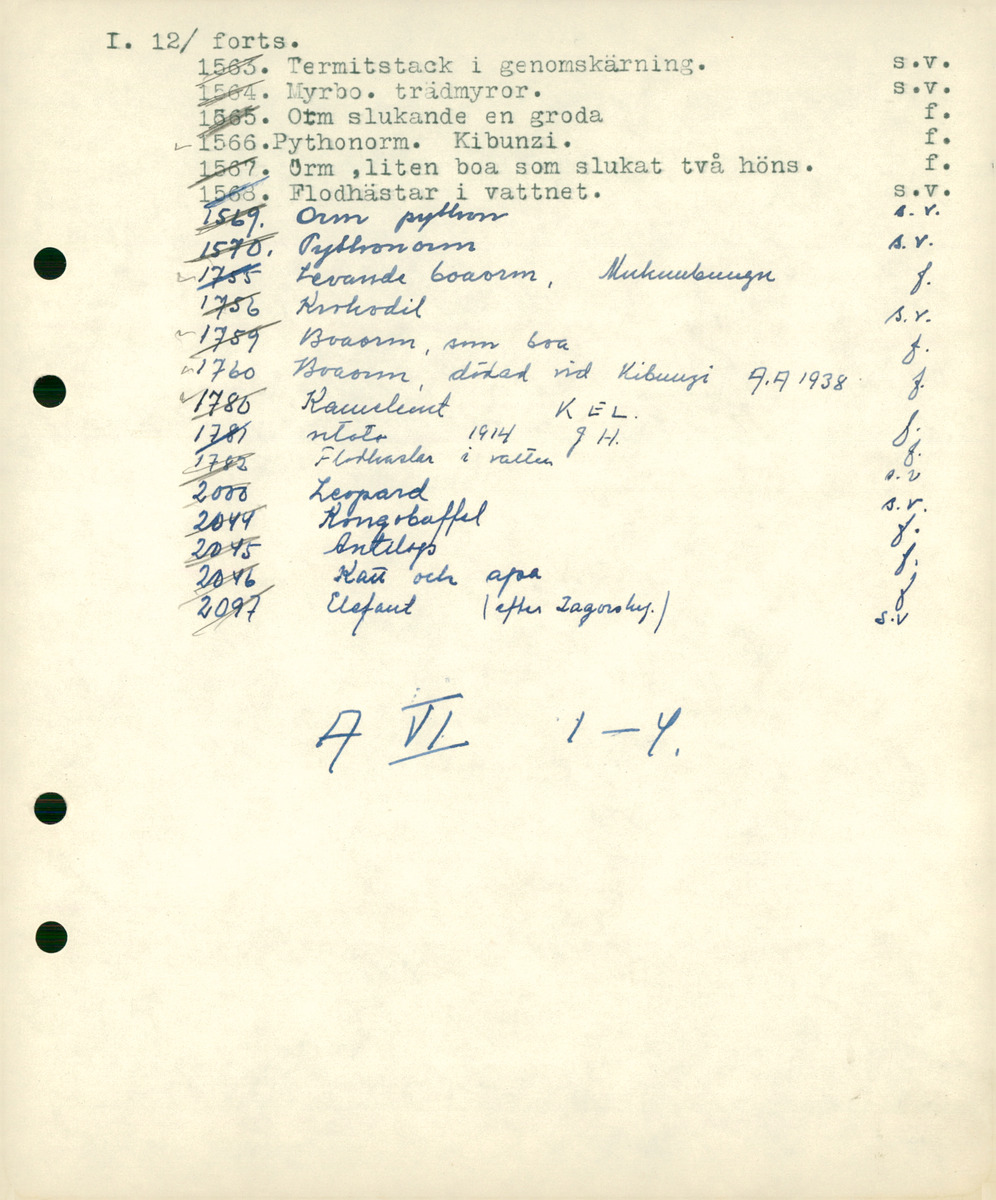 I. 12/ forts.
1563. Termitstack i genomskärning. s.v.
1564. Myrbo. trädmyror. s.v.
1565. Orm slukande en groda f.
1566. Pythonorm. Kibunzi. f.
1567. Orm ,liten boa som slukat två höns. f.
1568. Flodhästar i vattnet. s.v.
1569. Orm python s.v.
1570. Pythonorm s.v.
1755 Levande boaorm, f.
1756 Krokodil s.v.
1759 Boaorm, som boa f.
1760 Boaorm, dödad vid Kibunzi A.A 1938 f.
1780 Kameleont K E L. f.
1781 ntoto 1914 J H. f.
1782 Flodhästar i vatten s.v
2000 Leopard s.v.
2044 Kongobuffel f.
2045 Antilop f.
2046 Katt och apa f
2097 Elefant (efter Zagorsky.) s.v
A VI 1-4.